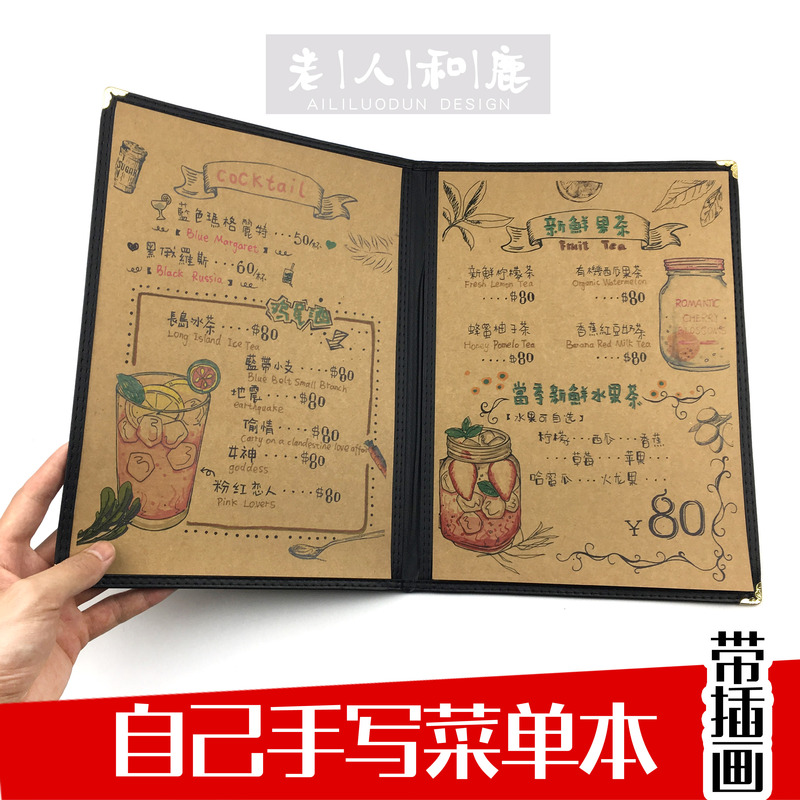 老|人|和|鹿
AILILUODUN DESIGN
SUGAR
cocktail
藍色瑪格麗特...50/杯
【Blue Margaret】
黑俄羅斯...60/杯
【Black Russia】
鸡尾酒
長島冰茶....$80
Long Island Ice Tea
藍帶小支....$80
Blue Belt Small Branch
地震....$80
earthquake
偷情....$80
Carry on a clandestine love affair
女神....$80
goddess
粉紅恋人....$80
Pink Lovers
新鮮果茶
Fruit Tea
新鮮柠檬茶
Fresh Lemon Tea
....$80
有機西瓜果茶
Organic Watermelon
....$80
蜂蜜柚子茶
Honey Pomelo Tea
....$80
香蕉紅豆奶茶
Banana Red Milk Tea
....$80
ROMANTIC
CHERRY
BLOSSOMS
當季新鮮水果茶
【水果可自选】
柠檬...西瓜...香蕉
...草莓...苹果...
哈蜜瓜...火龙果...
¥80
带插画
自己手写菜单本